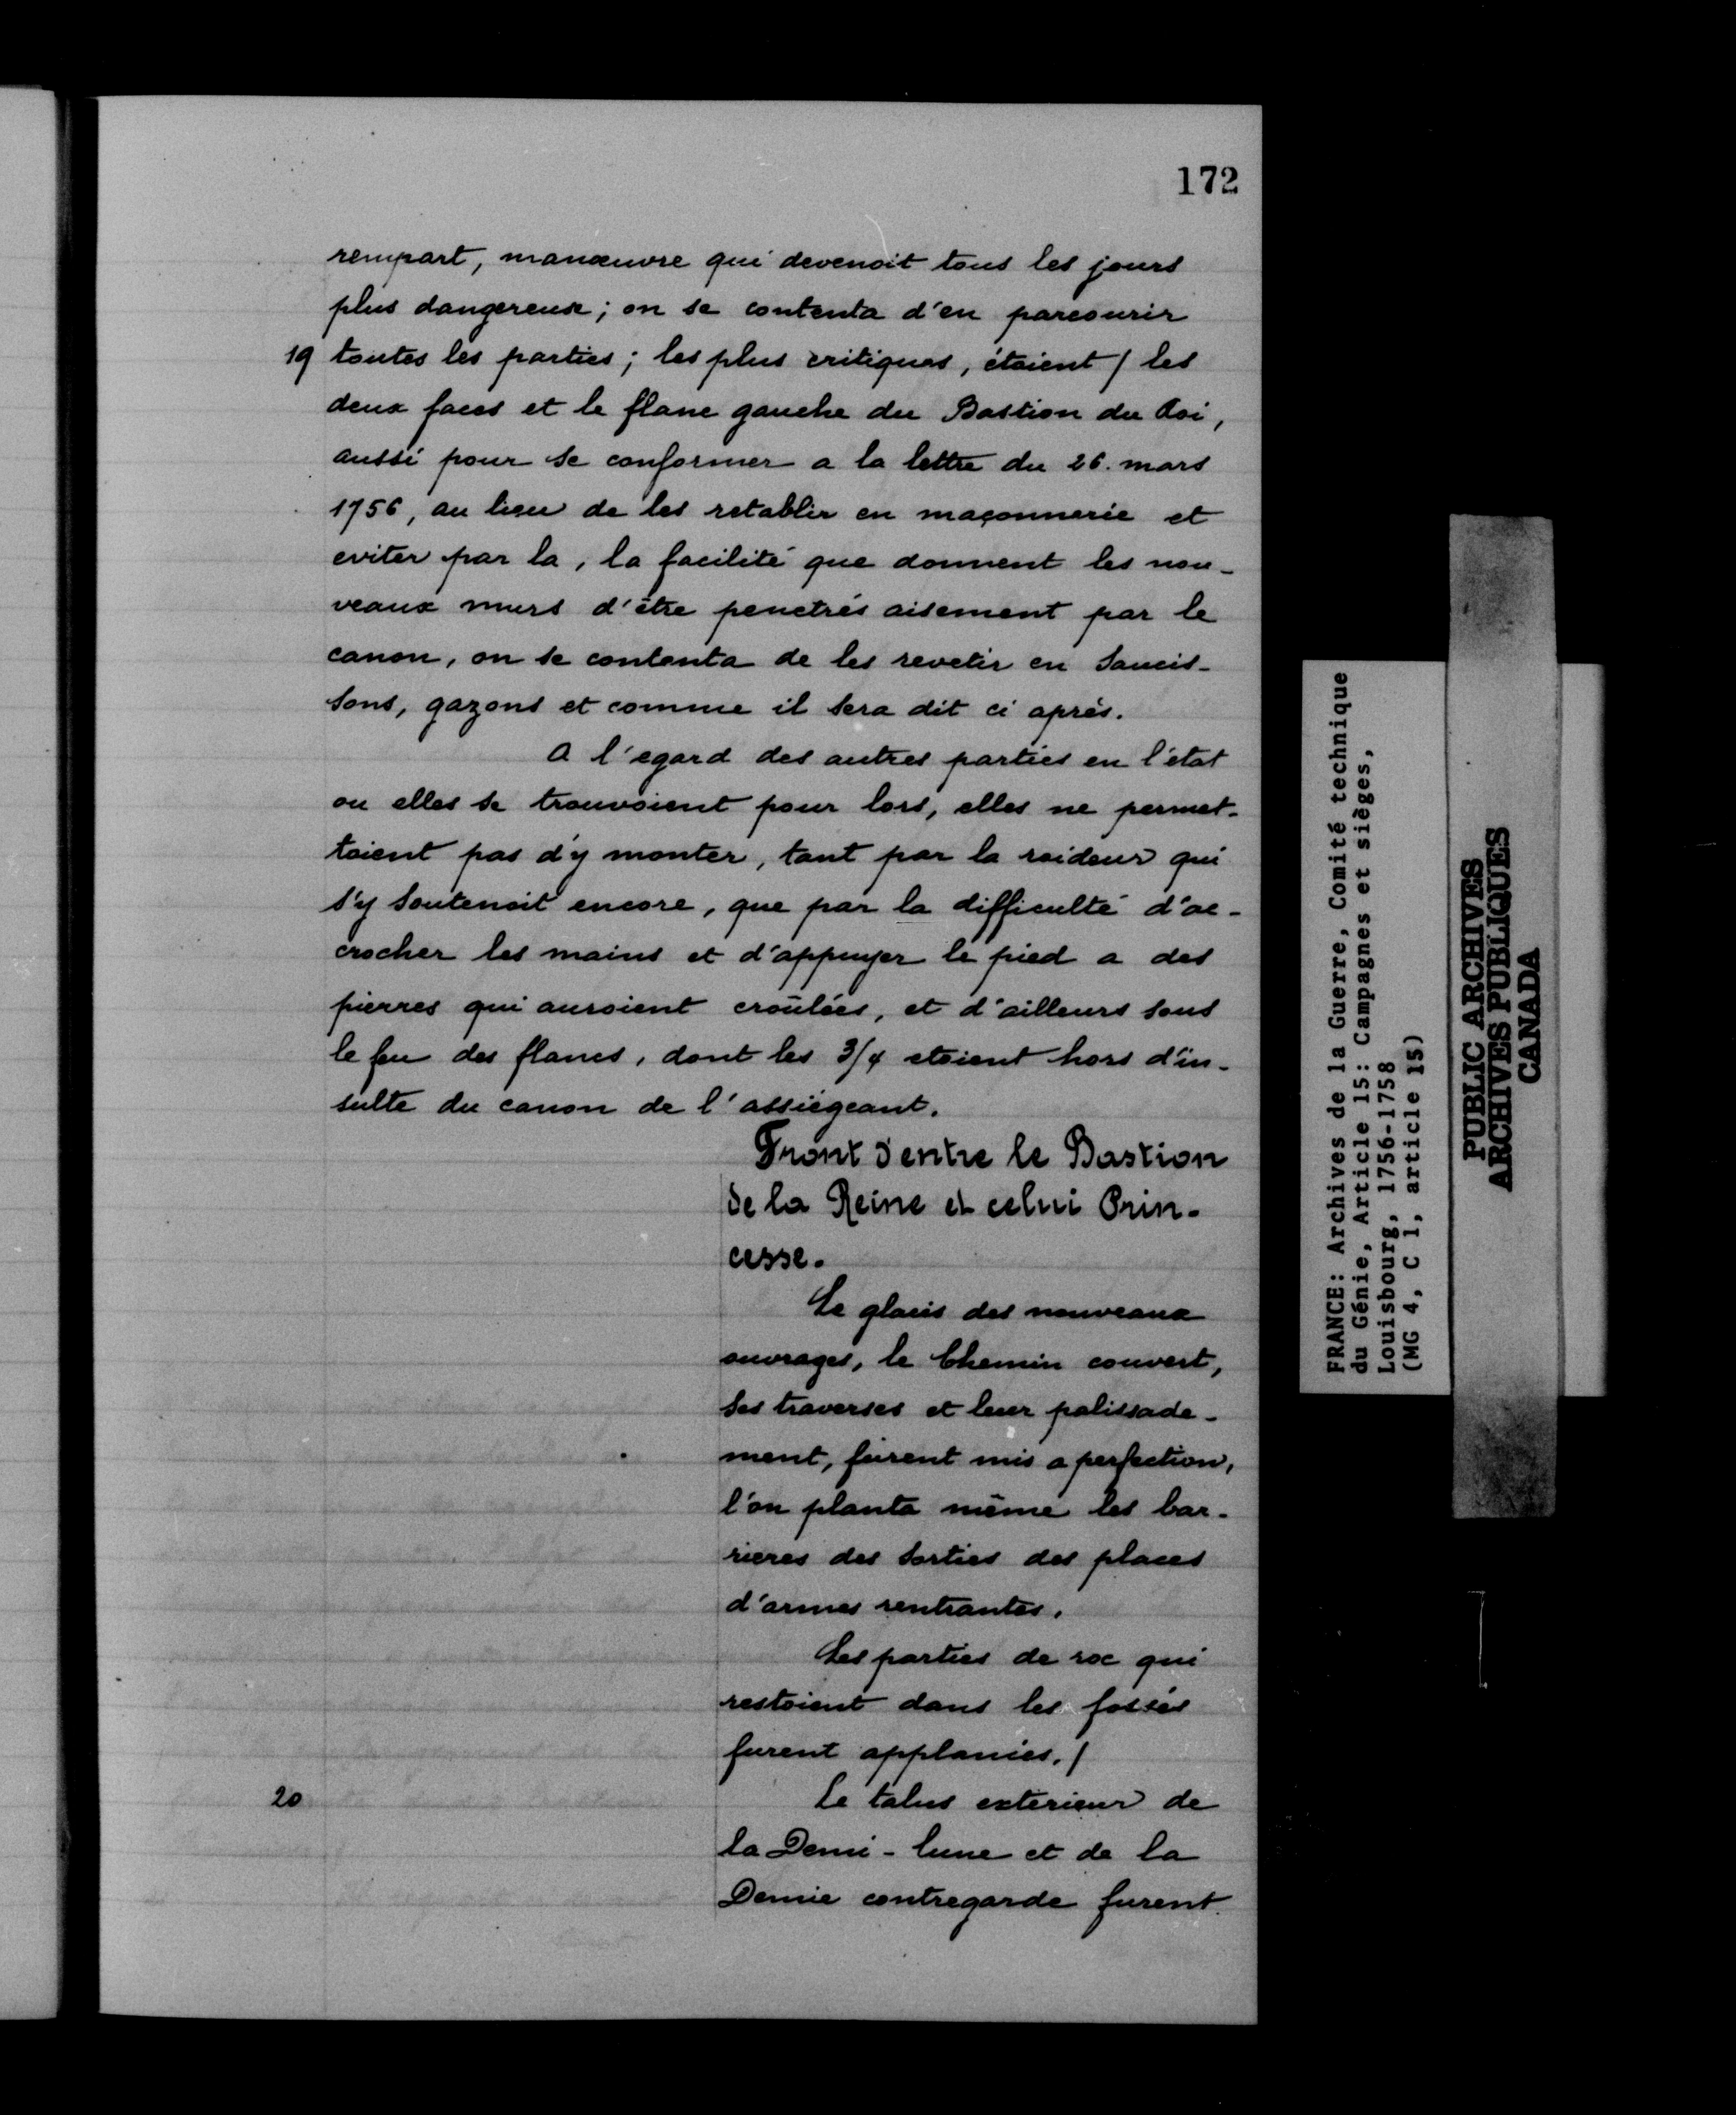 172
rempart, manœuvre qui devenoit tous les jours
plus dangereuse ; on se contenta d'en parcourir
19 toutes les parties ; les plus critiques, étaient / les
deux faces et le flanc gauche du Bastion du Roi,
aussi pour se conformer a la lettre du 26. mars
1756, au lieu de les retablir en maçonnerie et
eviter par la, la facilité que donnent les nou-
veaux murs d'être penetrés aisement par le
canon, on se contenta de les revetir en saucis-
sons, gazons et comme il sera dit ci aprés.
A l'egard des autres parties en l'état
ou elles se trouvoient pour lors, elles ne permet-
toient pas d'y monter, tant par la roideur qui
s'y soutenoit encore, que par la difficulté d'ac-
crocher les mains et d'appuyer le pied a des
pierres qui auroient croûlées, et d'ailleurs sous
le feu des flancs, dont les 3/4 etoient hors d'in-
sulte du canon de l'assiégeant.
Front d'entre le Bastion
de la Reine et celui Prin-
cesse.
Le glacis des nouveaux
ouvrages, le Chemin couvert,
ses traverses et leur palissade-
ment, fûrent mis a perfection,
l'on planta même les bar-
rieres des sorties des places
d'armes rentrantes.
Les parties de roc qui
restoient dans les fossés
furent applanies. /
20 Le talus exterieur de
la Demi-lune et de la
Demie contregarde furent
FRANCE: Archives de la Guerre, Comité technique
du Génie, Article 15: Campagnes et sièges,
Louisbourg, 1756-1758
(MG 4, C 1, article 15)
PUBLIC ARCHIVES
ARCHIVES PUBLIQUES
CANADA